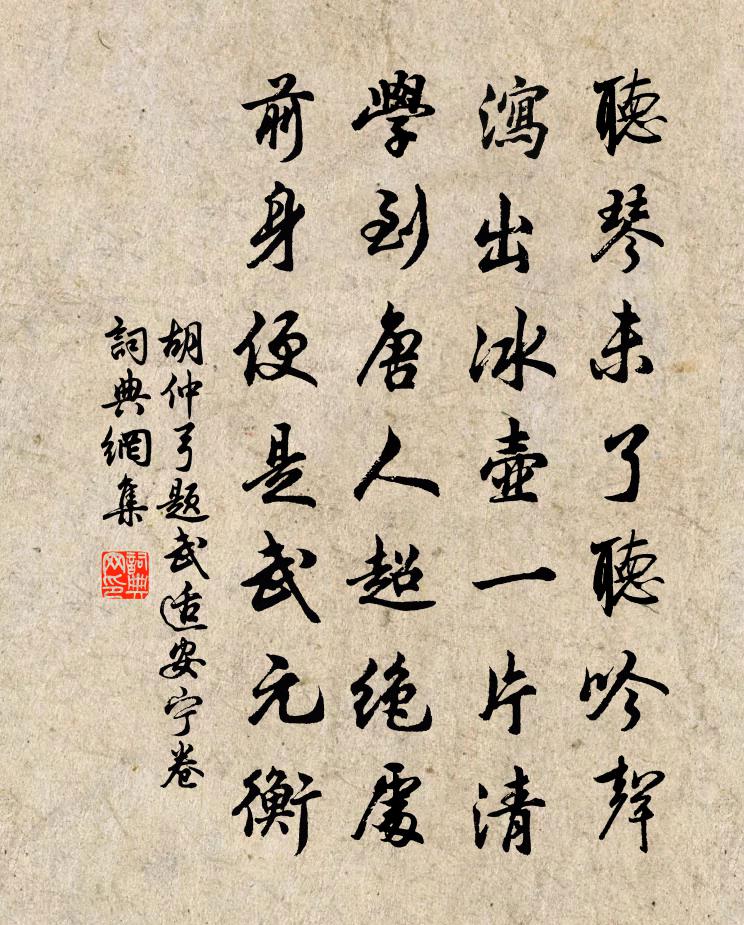 聽琴未了聽吟聲
瀉出冰壺一片清
學到唐人超絶處
前身便是武元衡
胡仲弓題武适安宁卷
詞典網集
詞典网印